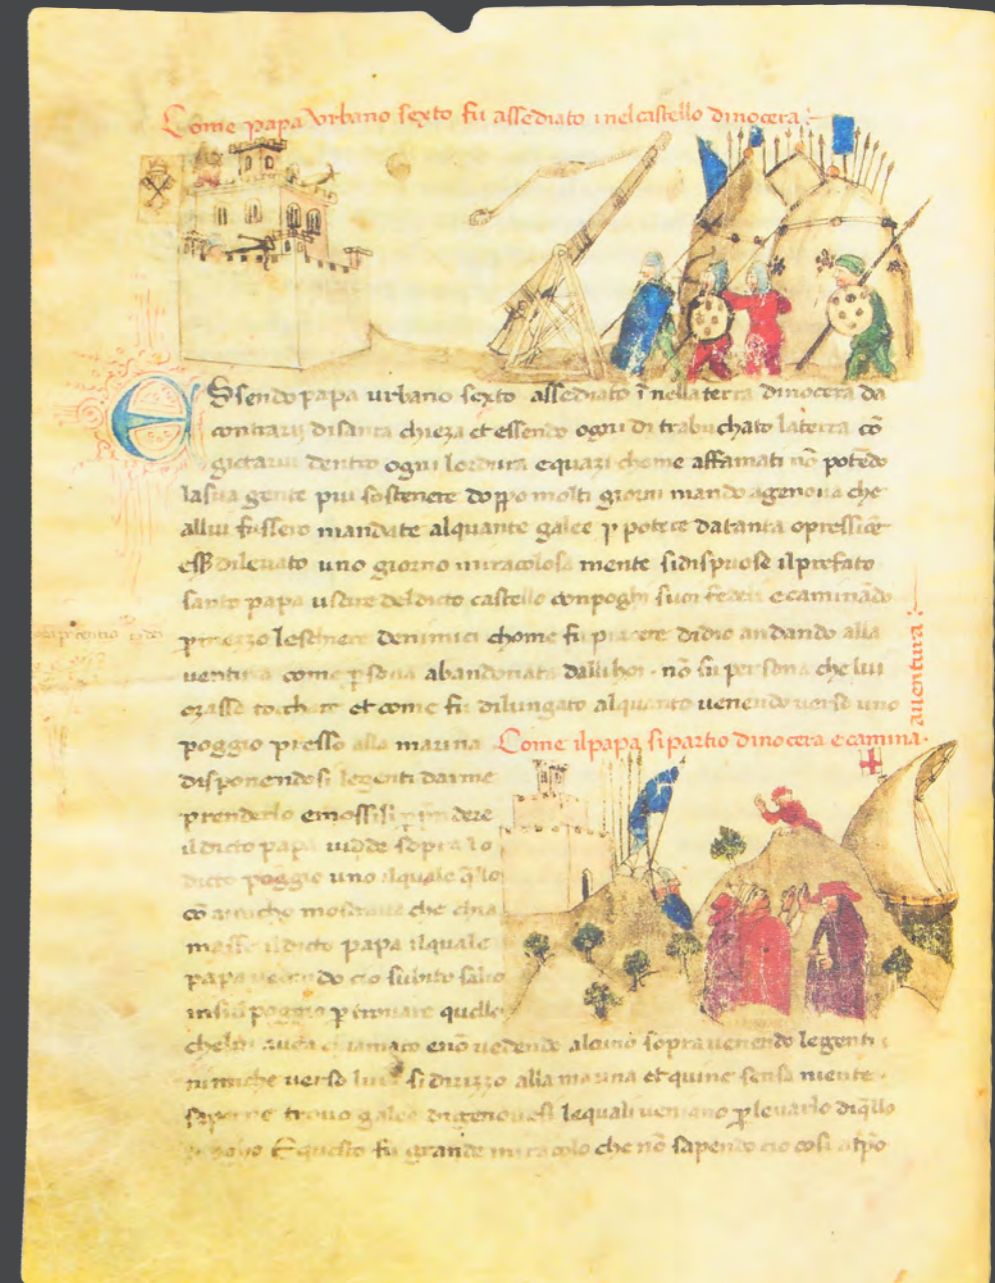 Come papa Vrbano sexto fu assediato inelcastello dinocera
Essendo papa urbano sexto assediato ĩ nellaterra dinocera da
contrarij disanta chieza et essendo ogni di trabuchato laterra cõ
gictarui dentro ogni lordura equazi chome affamati nõ potẽdo
lasua gente piu sostenere doppo molti giorni mando agenoua che
allui fussero mandate alquante galee ꝑ potere datanta
dileuato uno giorno miracolosa mente sidispuose ilprefato
santo papa uscire deldicto castello conpoghi suoi fedeli ecaminãdo
denimici chome fu piacere didio andando alla
uentura come ꝑsona abandonata dallihoi nõ fu persona chelui
ozasse tochare et come fu dilungato alquanto uenendo uerso uno
poggio presso alla marina
Come ilpapa sipartio dinocera ecamina
auentura
disponendosi legenti darme
prenderlo emossisi
ildicto papa uidde sopra lo
dicto poggio uno ilquale
cõ mostraua che chia
masse ildicto papa ilquale
papa uedendo cio subito salio
insul poggio ꝑ trouare quello
chelui auea chiamato enõ uedendo alcuno soprauenendo legenti
nimiche uerso lui sidirizzo alla marina et quine sensa niente
sapere trouo galee digenouesi lequali ueniano ꝑ leuarlo diq̃llo
Equesto fu grande miracolo che nõ sapendo cio cosi